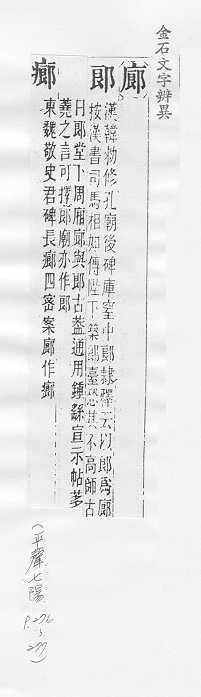 金石文字辨異
廊
郎
漢韓勑修孔廟後碑庫室中郎隸釋云以郎為廊
按漢書司馬相如傳陛下築郎臺恐其不高師古
曰郎堂下周廂廊與郎古蓋通用鍾繇宣示帖芻
蕘之言可擇郎廟亦作郎
㾿
東魏敬史君碑長㾿四密案廊作㾿
(平聲七陽
P.276
~
277)